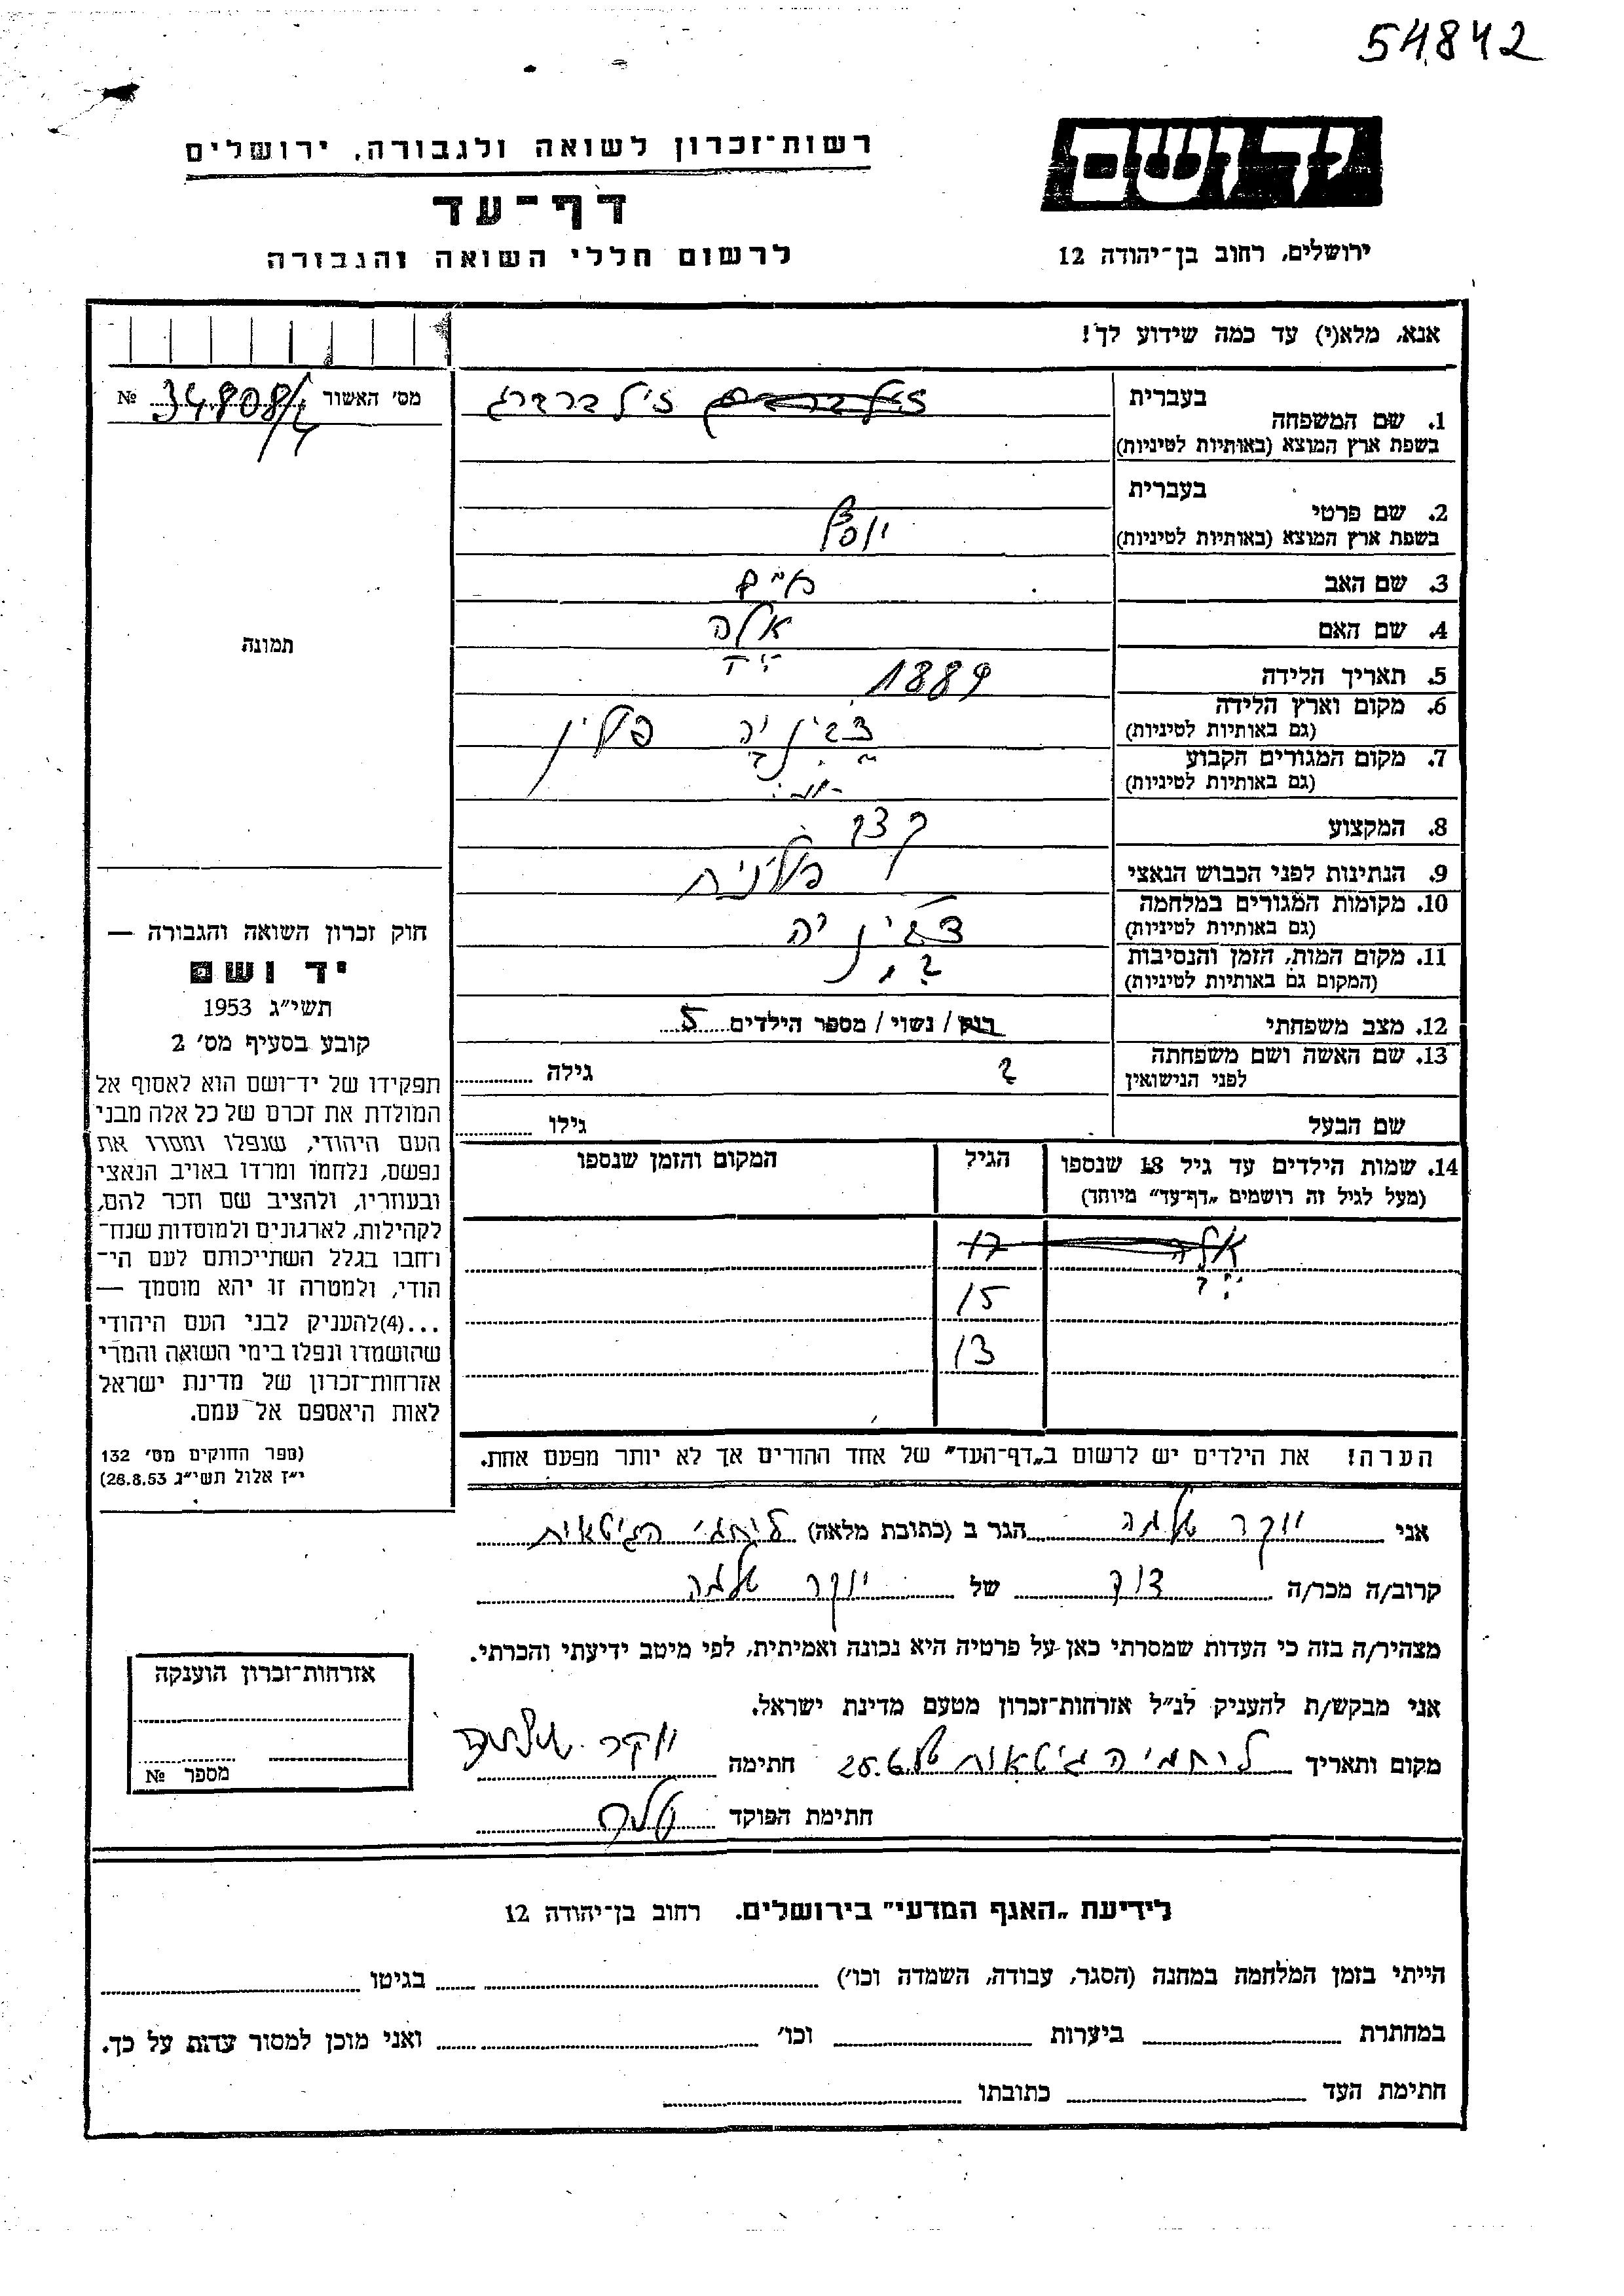 54842
יד ושם
רשות־זכרון לשואה ולגבורה, ירושלים
דף־עד
לרשום חללי השואה והגבורה
ירושלים, רחוב בן־יהודה 12
אנא, מלא(י) עד כמה שידוע לך!
מס׳ האשור № 34808/
1. שם המשפחה בעברית זילברברג
בשפת ארץ המוצא (באותיות לטיניות)
2. שם פרטי בעברית
בשפת ארץ המוצא (באותיות לטיניות) יוסף
3. שם האב חיים
4. שם האם
5. תאריך הלידה 1889
6. מקום וארץ הלידה פולין
(גם באותיות לטיניות)
7. מקום המגורים הקבוע
(גם באותיות לטיניות)
8. המקצוע קצב
9. הנתינות לפני הכבוש הנאצי פולנית
10. מקומות המגורים במלחמה
(גם באותיות לטיניות)
11. מקום המות, הזמן והנסיבות
(המקום גם באותיות לטיניות)
12. מצב משפחתי רווק / נשוי / מספר הילדים 5
13. שם האשה ושם משפחתה ? גילה
לפני הנישואין
שם הבעל גילו
14. שמות הילדים עד גיל 18 שנספו הגיל המקום והזמן שנספו
(מעל לגיל זה רושמים „דף־עד” מיוחד)
17
15
13
הערה! את הילדים יש לרשום ב„דף־העד” של אחד ההורים אך לא יותר מפעם אחת.
תמונה
חוק זכרון השואה והגבורה —
יד ושם
תשי״ג 1953
קובע בסעיף מס׳ 2
תפקידו של יד־ושם הוא לאסוף אל
המולדת את זכרם של כל אלה מבני
העם היהודי, שנפלו ומסרו את
נפשם, נלחמו ומרדו באויב הנאצי
ובעוזריו, ולהציב שם וזכר להם,
לקהילות, לארגונים ולמוסדות שנח־
רחבו בגלל השתייכותם לעם הי־
הודי, ולמטרה זו יהא מוסמך —
...(4) להעניק לבני העם היהודי
שהושמדו ונפלו בימי השואה והמרי
אזרחות־זכרון של מדינת ישראל
לאות היאספם אל עמם.
(ספר החוקים מס׳ 132
י״ז אלול תשי״ג 28.8.53)
אני יוקר שלמה הגר ב (כתובת מלאה) לוחמי הגיטאות
קרוב/ה מכר/ה דוד של יוקר שלמה
מצהיר/ה בזה כי העדות שמסרתי כאן על פרטיה היא נכונה ואמיתית, לפי מיטב ידיעתי והכרתי.
אני מבקש/ת להעניק לנ״ל אזרחות־זכרון מטעם מדינת ישראל.
מקום ותאריך לוחמי הגיטאות 25.6. חתימה יוקר
חתימת הפוקד
אזרחות־זכרון הוענקה
מספר №
לידיעת „האגף המדעי” בירושלים. רחוב בן־יהודה 12
הייתי בזמן המלחמה במחנה (הסגר, עבודה, השמדה וכו׳) בגיטו
במחתרת ביערות וכו׳ ואני מוכן למסור עדות על כך.
חתימת העד כתובתו